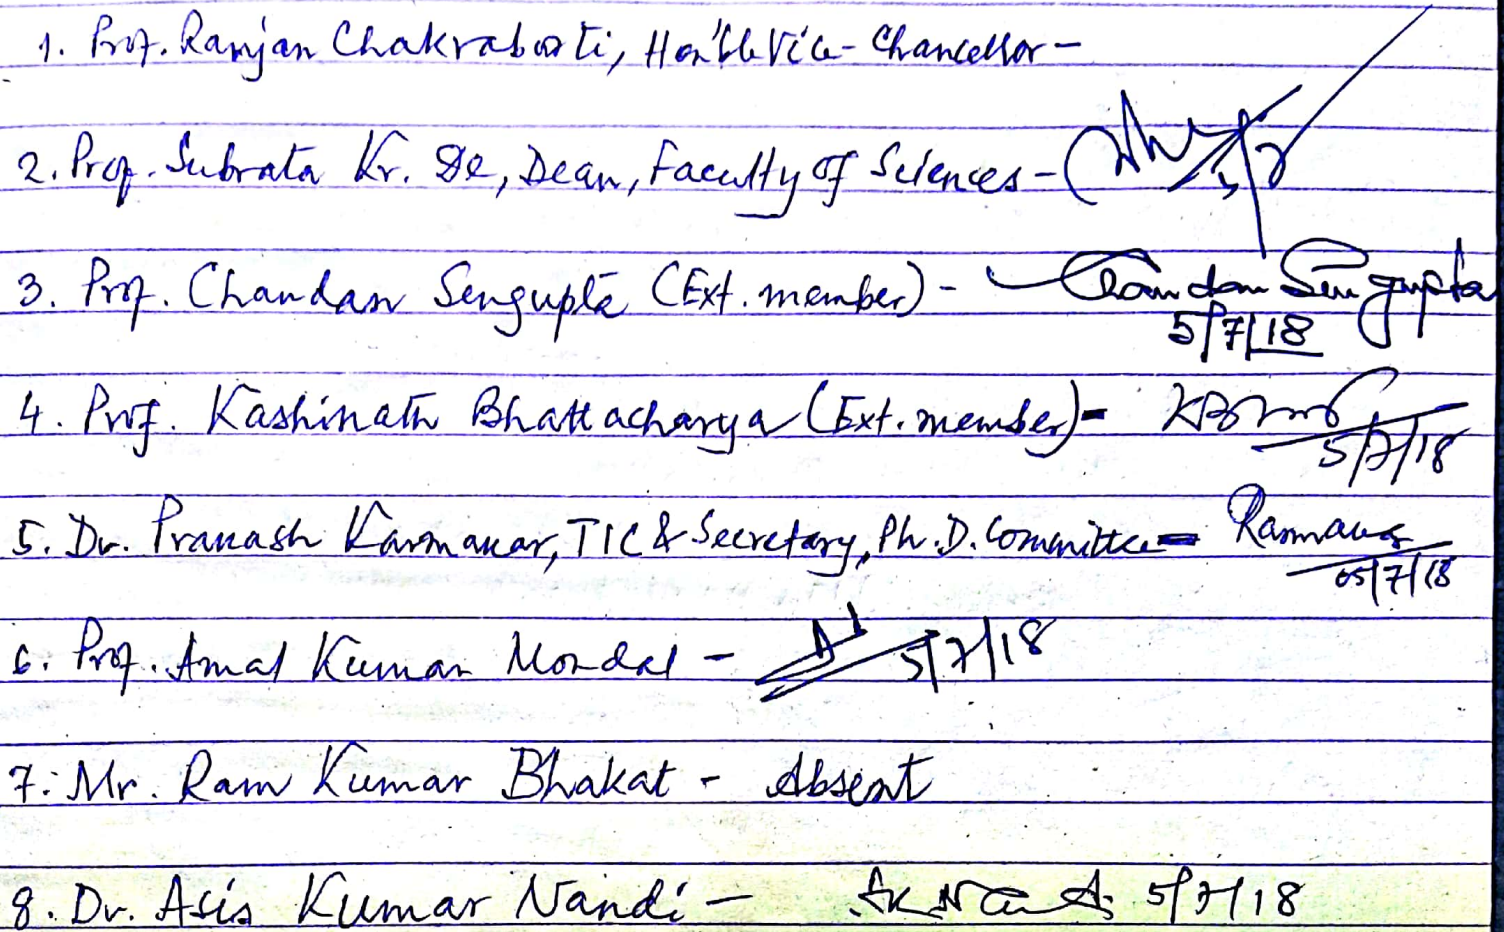 1. Prof. Ranjan Chakraborti, Hon'ble Vice-Chancellor -
2. Prof. Subrata Kr. De, Dean, Faculty of Sciences -
3. Prof. Chandan Sengupta (Ext. member) - Chandan Sengupta
5/7/18
4. Prof. Kashinath Bhattacharya (Ext. member) -
5/7/18
5. Dr. Prakash Karmakar, TIC & Secretary, Ph.D. Committee - Karmakar
05/7/18
6. Prof. Amal Kumar Mondal - 5/7/18
7. Mr. Ram Kumar Bhakat - Absent
8. Dr. Asis Kumar Nandi - AK Nandi 5/7/18